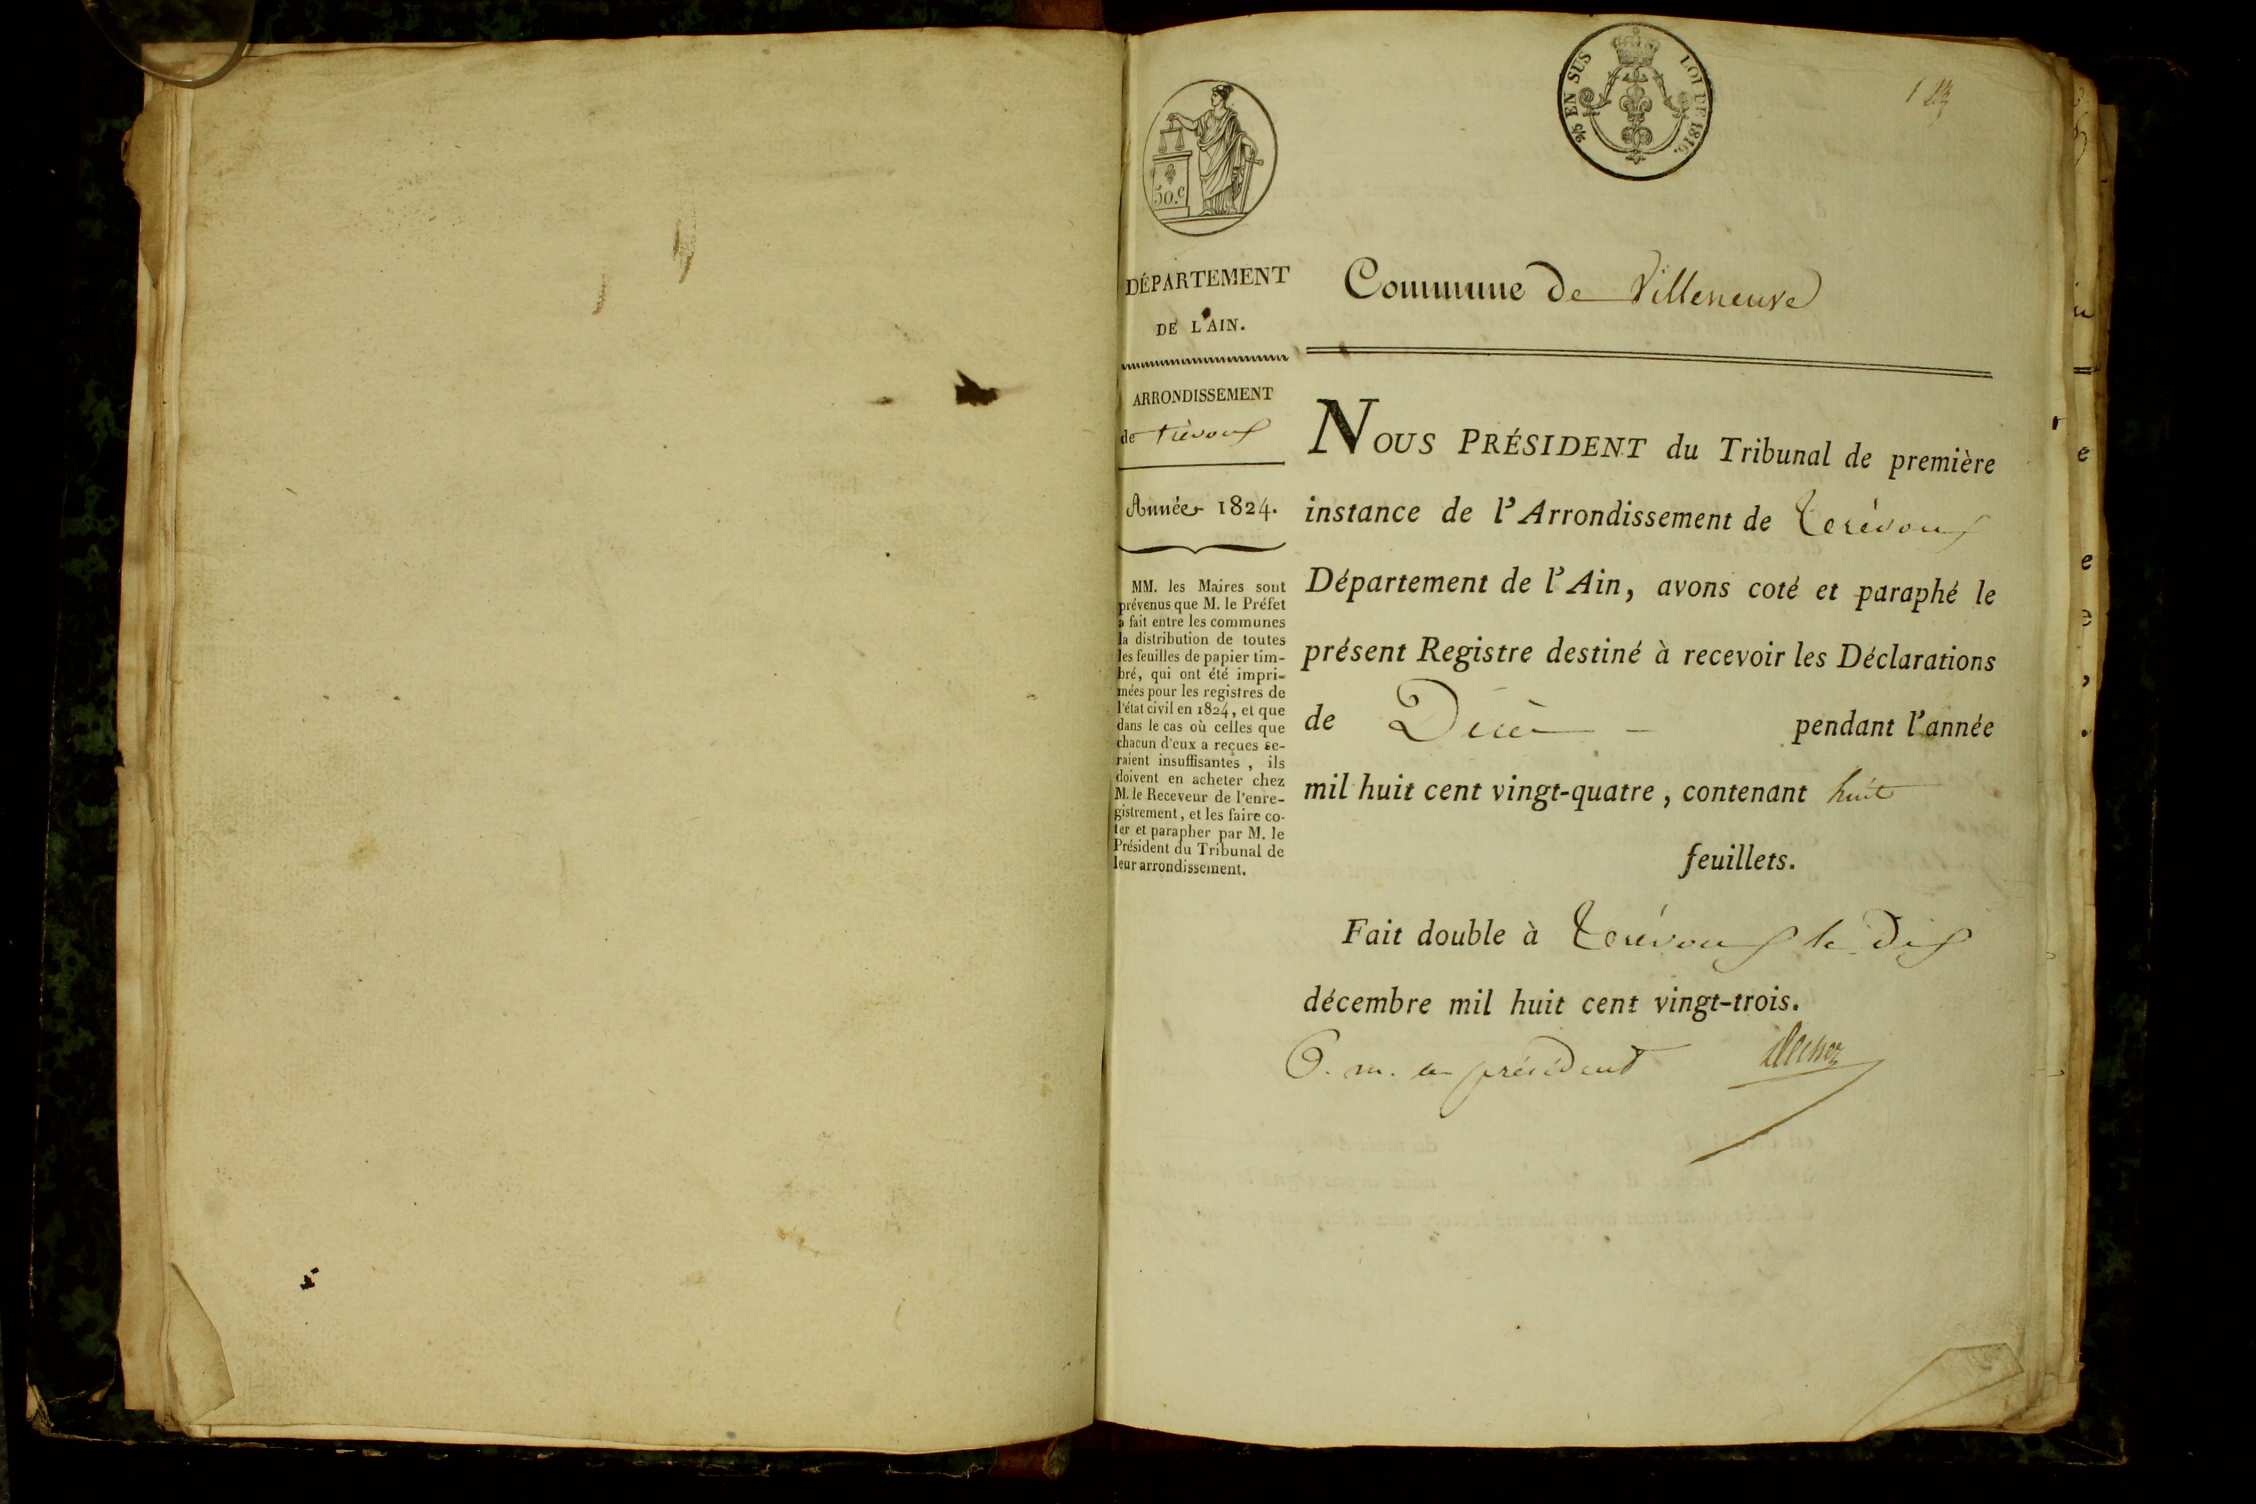 50.c
2/5 EN SUS LOI DE 1816.
1
DÉPARTEMENT
DE L'AIN.
ARRONDISSEMENT
de trévoux
Année 1824.
MM. les Maires sont
prévenus que M. le Préfet
a fait entre les communes
la distribution de toutes
les feuilles de papier tim-
bré, qui ont été impri-
mées pour les registres de
l'état civil en 1824, et que
dans le cas où celles que
chacun d'eux a reçues se-
raient insuffisantes, ils
doivent en acheter chez
M. le Receveur de l'enre-
gistrement, et les faire co-
ter et parapher par M. le
Président du Tribunal de
leur arrondissement.
Commune de Villeneuve
NOUS PRÉSIDENT du Tribunal de première
instance de l'Arrondissement de Trévoux
Département de l'Ain, avons coté et paraphé le
présent Registre destiné à recevoir les Déclarations
de Décès pendant l'année
mil huit cent vingt-quatre, contenant huit
feuillets.
Fait double à Trévoux le dix
décembre mil huit cent vingt-trois.
président